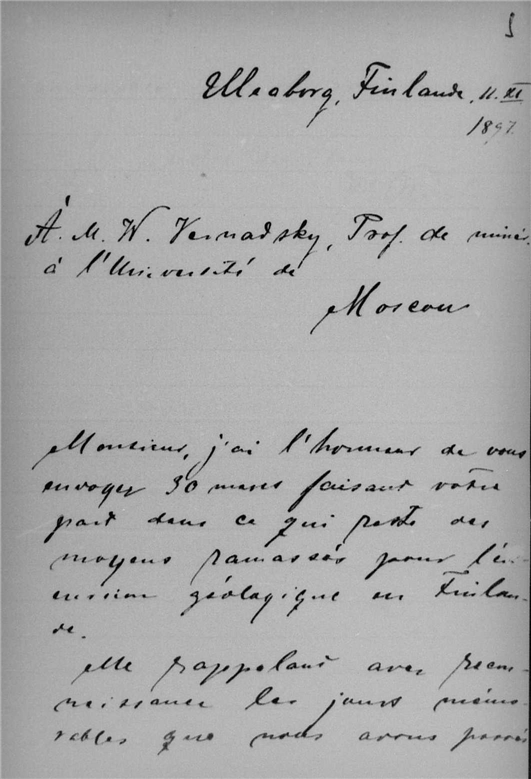 Uleaborg, Finlande, 11. XI
1897.
À M. W. Vernadsky, Prof. de minér.
à l'Université de
Moscou
Monsieur, j'ai l'honneur de vous
envoyer 30 marcs faisant votre
part dans ce qui reste des
moyens ramassés pour l'é
cursion géologique en Finlan-
de.
Me rappelant avec recon-
naissance les jours mémo-
rables que nous avons passés